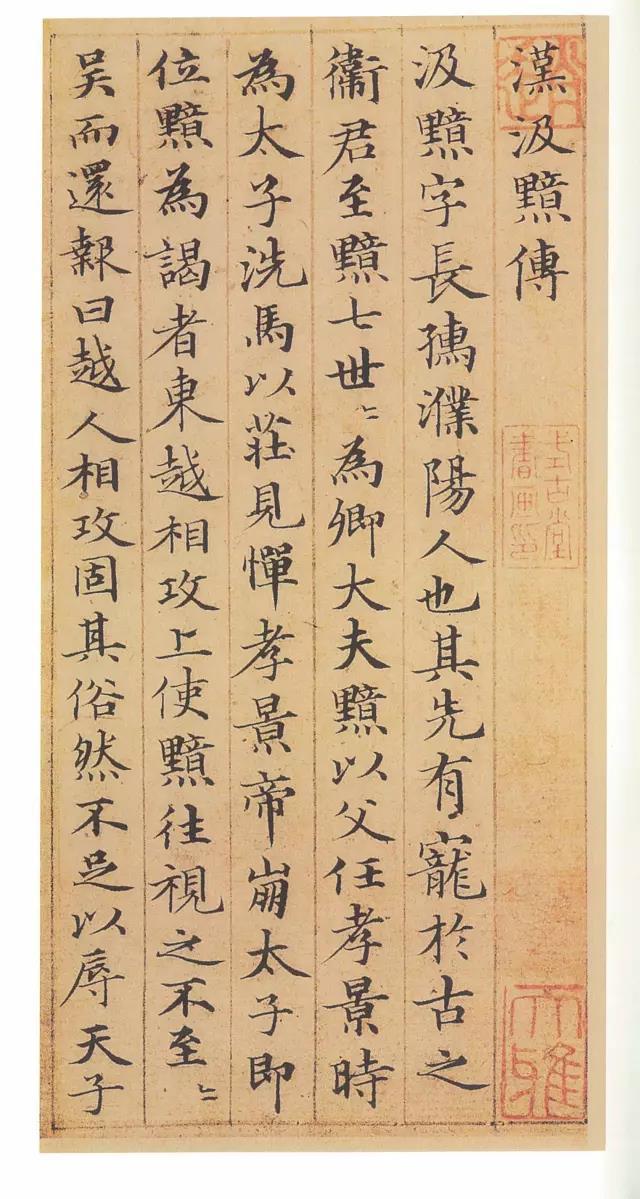 漢汲黯傳
汲黯字長孺濮陽人也其先有寵於古之
衞君至黯七世〻為卿大夫黯以父任孝景時
為太子洗馬以莊見憚孝景帝崩太子即
位黯為謁者東越相攻上使黯往視之不至〻
吳而還報曰越人相攻固其俗然不足以辱天子
大雅